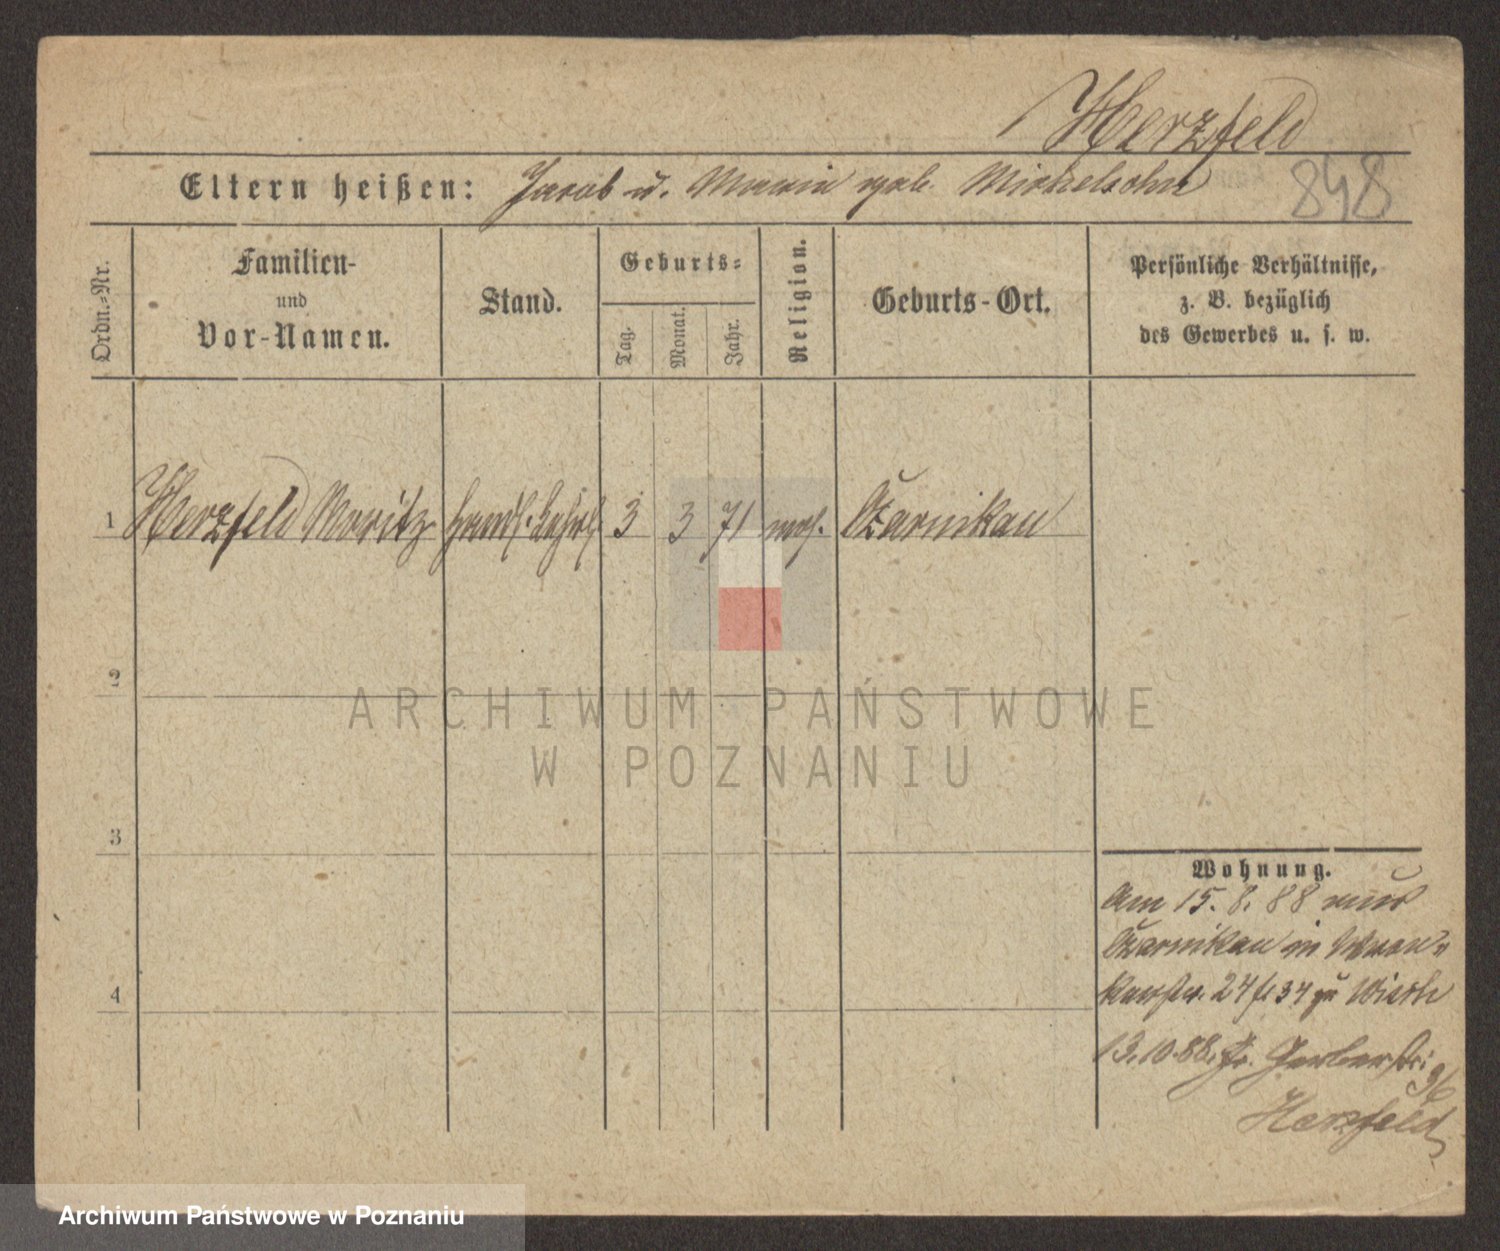 Herzfeld
Eltern heißen: Jacob u. Maria geb. Michelsohn
848
Ordn.=Nr.
Familien-
und
Vor-Namen.
Stand.
Geburts=
Tag.
Monat.
Jahr.
Religion.
Geburts-Ort.
Persönliche Verhältnisse,
z. B. bezüglich
des Gewerbes u. s. w.
1 Herzfeld Moritz Handl. Lehrl. 3 3 71 mos. Czarnikau
2
3
4
Wohnung.
Am 15. 8. 88 aus
Czarnikau in Wron=
kerstr. 24 zu Wirth
13.10.88. Gerberstr:
36
Herzfeld
ARCHIWUM PAŃSTWOWE
W POZNANIU
Archiwum Państwowe w Poznaniu